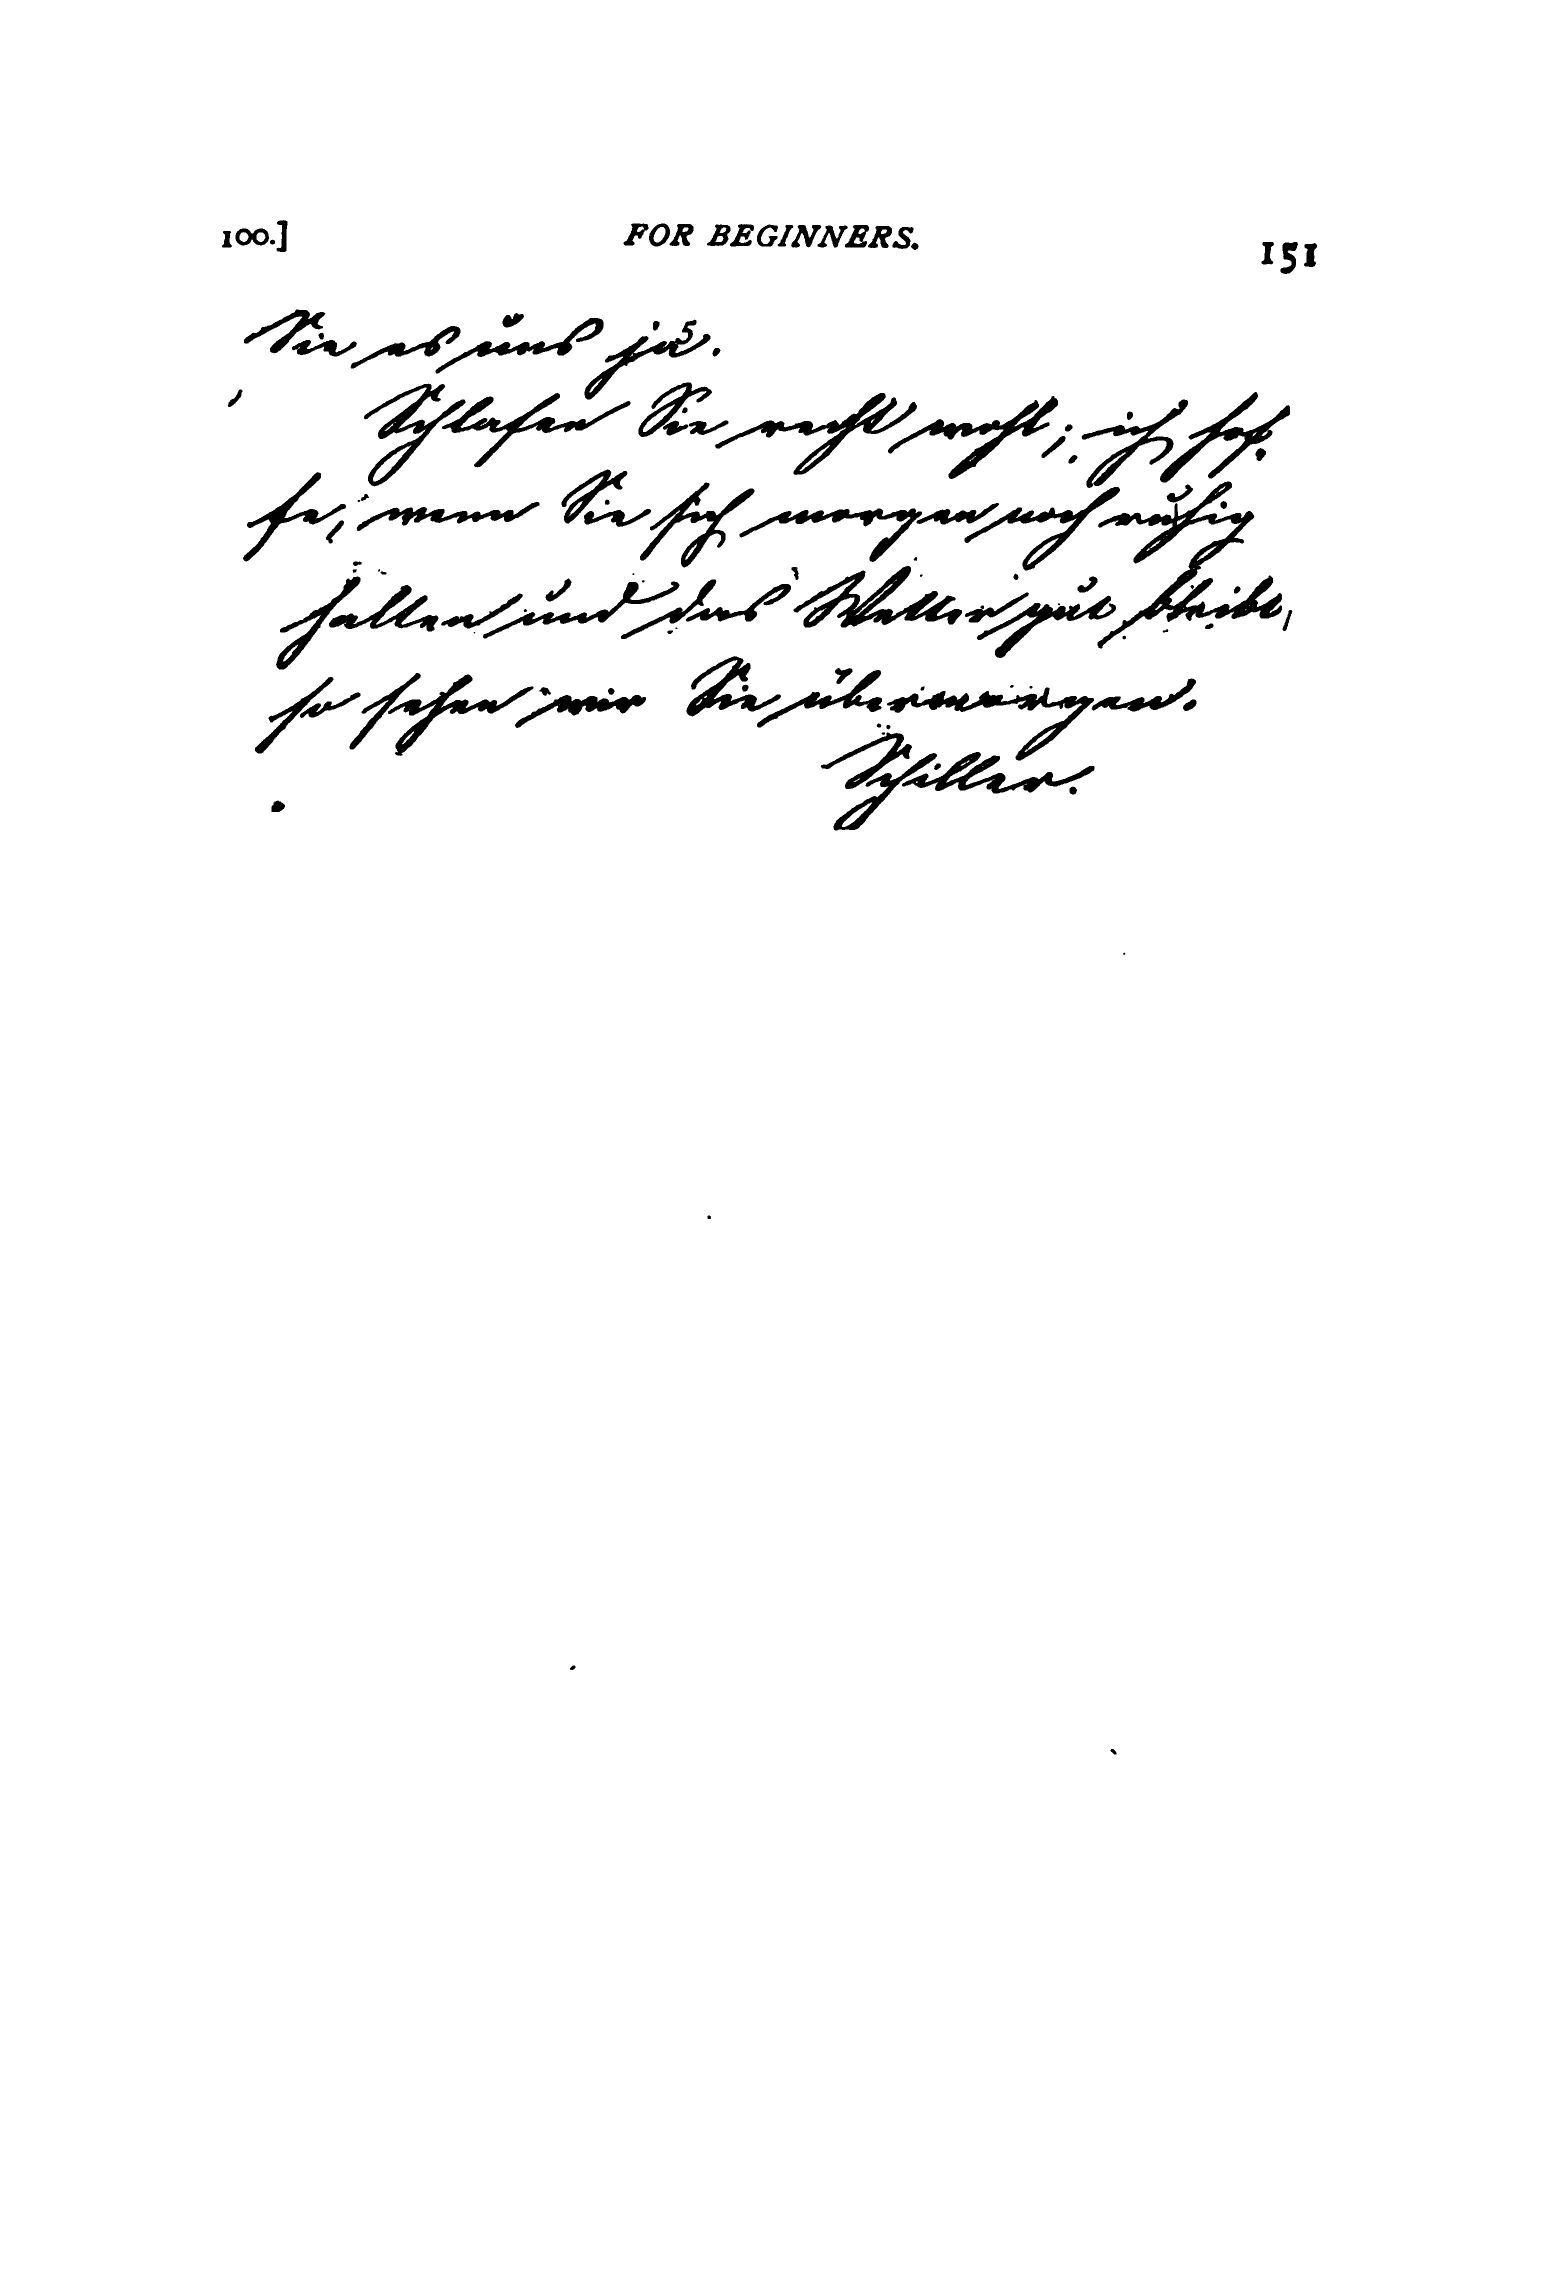 100.] FOR BEGINNERS. 151
Sie es uns ja⁵.
Schlafen Sie recht wohl; ich hof-
fe, wenn Sie sich morgen noch ruhig
halten und das Wetter gut bleibt,
so sehen wir Sie übermorgen.
Schiller.